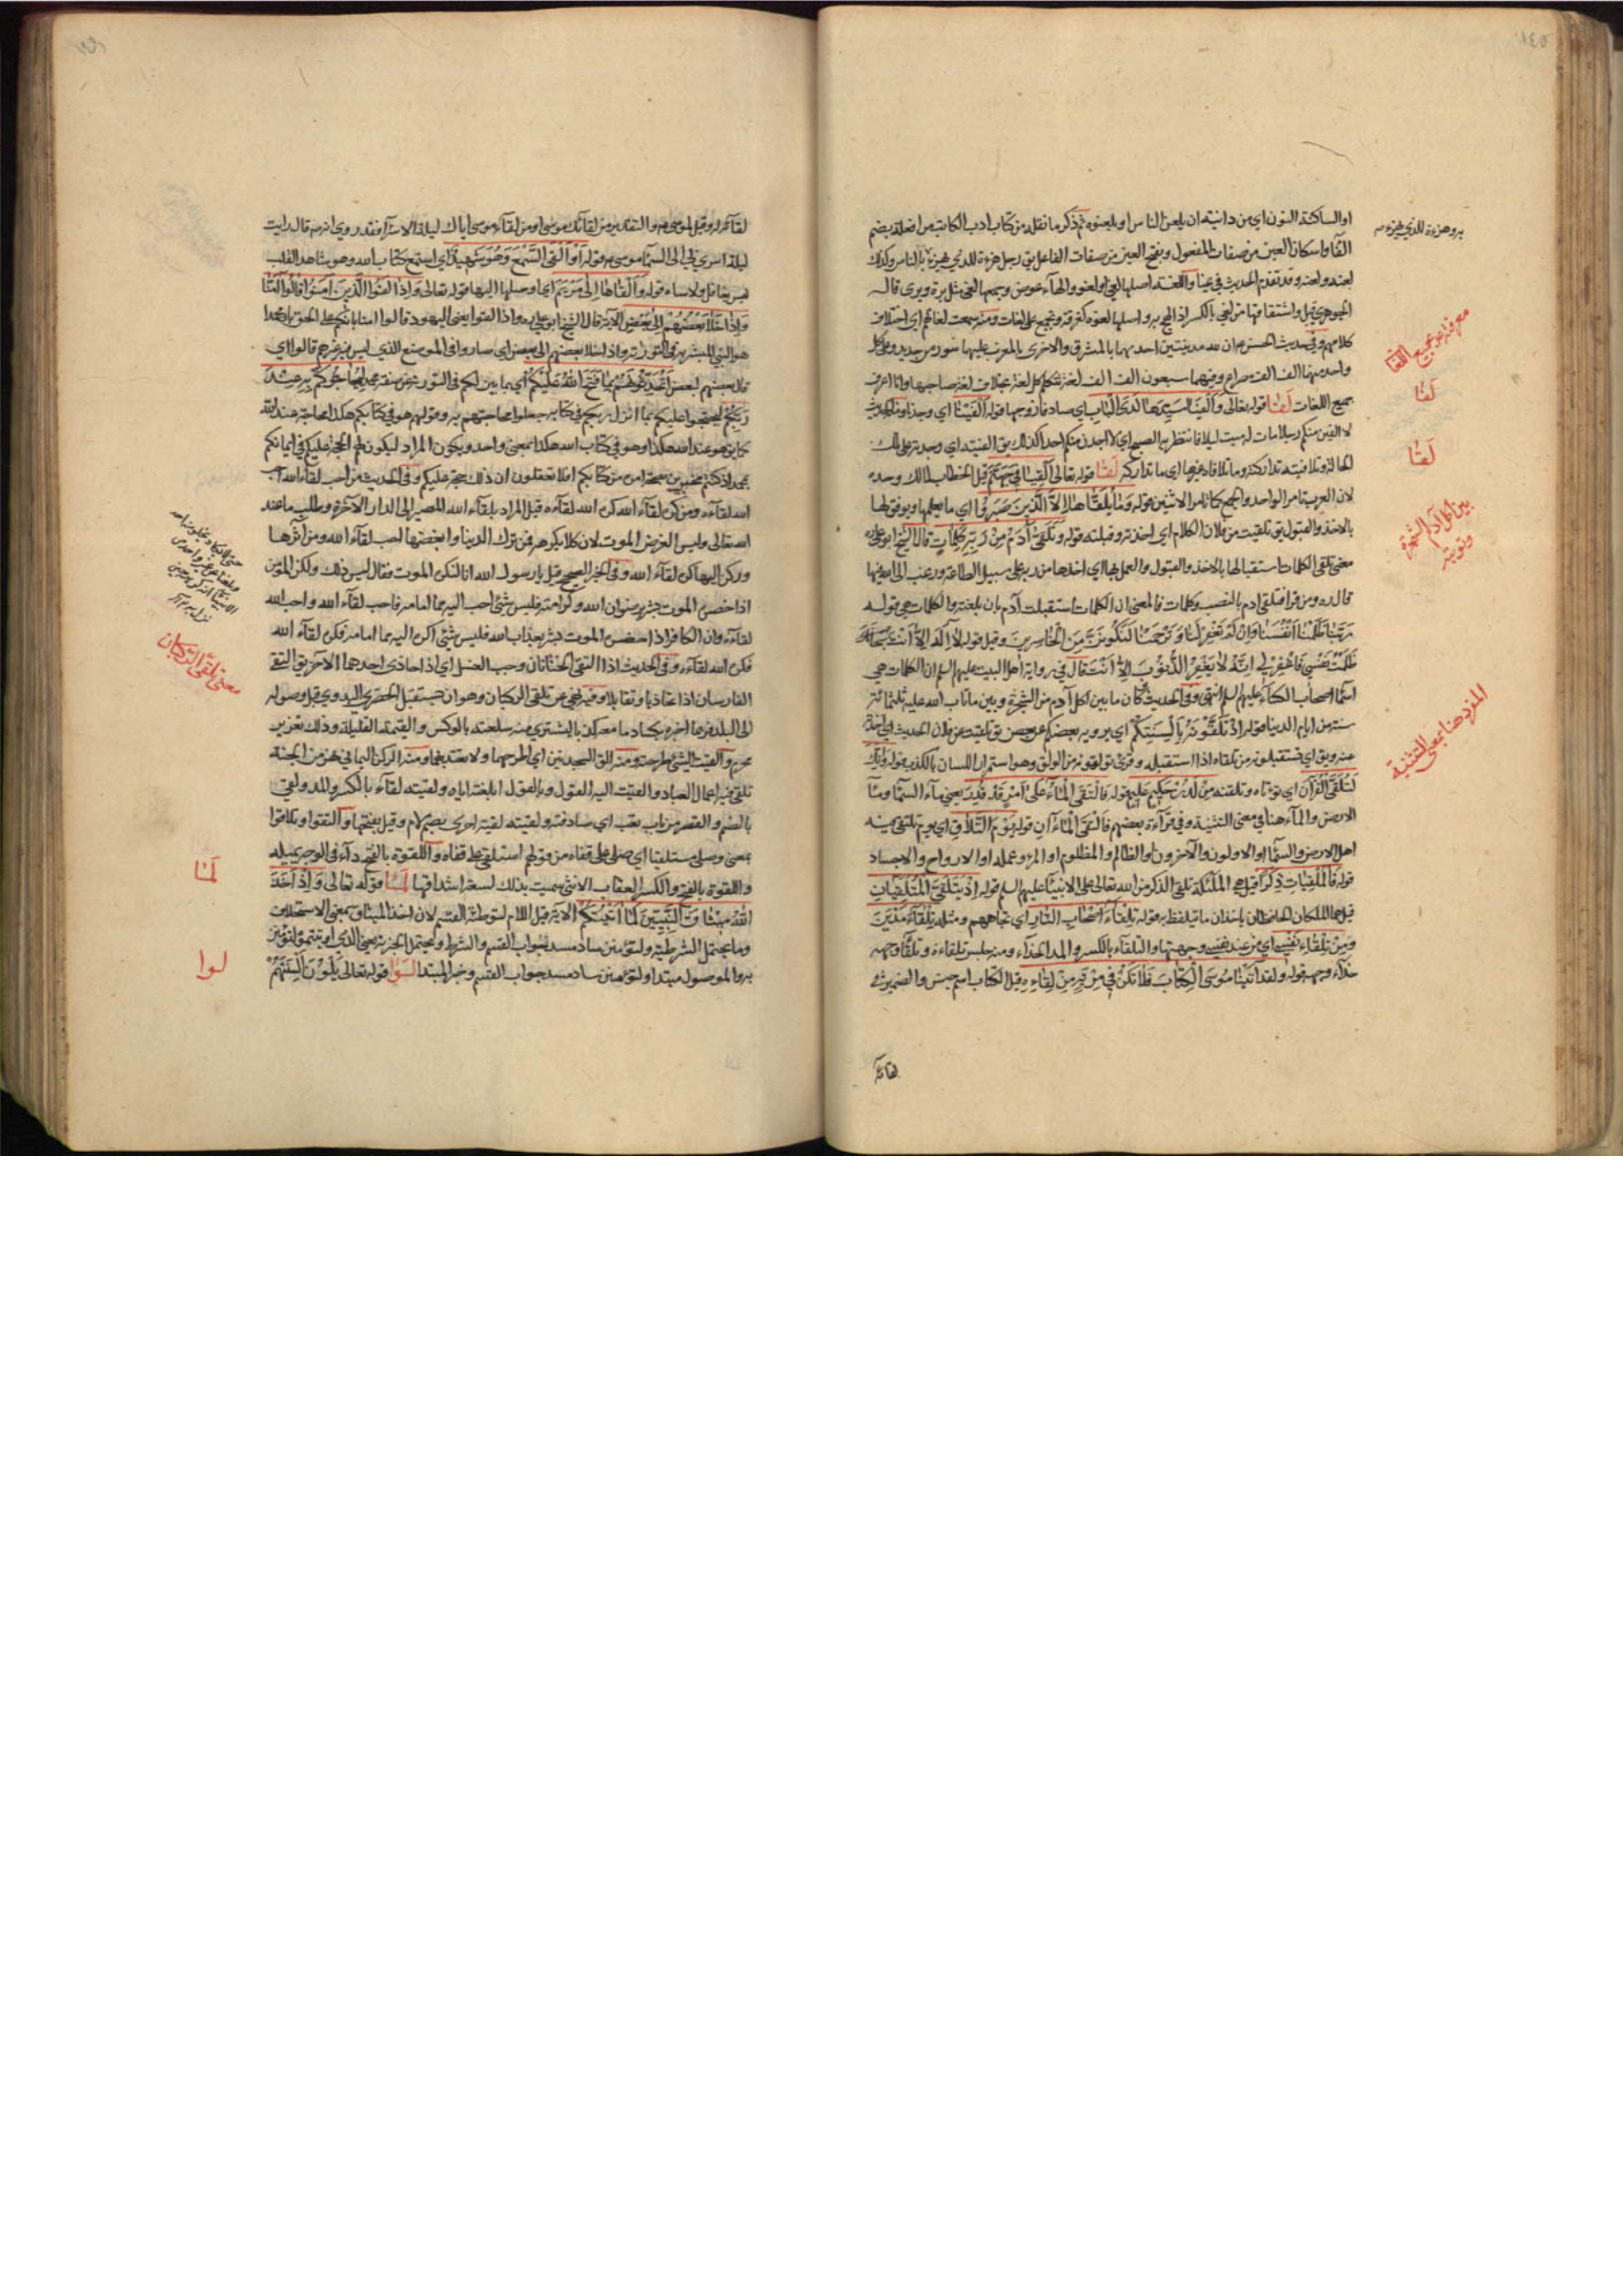 ١٤٥
او الساكنة النون اي من دانيته ان يلعن الناس او يلعنوه ثم ذكر ما نقله من كتاب ادب الكاتب من ان فعلة بضم
الفآء واسكان العين من صفات المفعول وبفتح العين من صفات الفاعل يق رجل هزءة للذي يهزء بالناس وكذلك
لعنه ولعنه وقد تقدم الحديث في عنا واللغة اصلها لغي او لغو والهآء عوض وجمعها لغى مثل برة وبرى قال
الجوهري قيل واشتقاقها من لغي بالكسر اذا لهج به واصلها لغوة كغرفة وتجمع على لغات ومنه سمعت لغاتهم اي اختلاف
كلامهم وفي حديث الحسن ع ان لله مدينتين احديهما بالمشرق والاخرى بالمغرب عليهما سور من حديد وعلى كل
واحد منهما الف الف مصراع وفيهما سبعون الف الف لغة تتكلم كل لغة بخلاف لغة صاحبها وانا اعرف
جميع اللغات لفا قوله تعالى وَاَلْفَيَا سَيِّدَهَا لَدَى الْبَابِ اي صادفا زوجها قوله اَلْفَيْنَا اي وجدنا وفي الحديث
لا الفين منكم رجلا مات له ميت ليلا فانتظر به الصبح اي لا اجدن منكم احدا كذلك يق الفيته اي وجدته على تلك
الحالة وتلافيته تداركته وما تلافاه غيرها اي ما تداركه لقا قوله تعالى اَلْقِيَا فِي جَهَنَّمَ قيل الخطاب لمالك وحده
لان العرب تامر الواحد والجمع كما تامر الاثنين قوله وَمَا يُلَقَّاهَا اِلاَّ الَّذِينَ صَبَرُوا اي ما يعلمها ويوفق لها
بالاخذ والقبول يق تلقيت من فلان الكلام اي اخذته وقبلته قوله فَتَلَقَّى آدَمُ مِنْ رَبِّهِ كَلِمَاتٍ قال الشيخ ابو علي ره
معنى تلقى الكلمات استقبالها بالاخذ والقبول والعمل بها اي اخذها من ربه على سبيل الطاعة ورغب الى الله فيها
قال ره ومن قرا فتلقى ادم بالنصب وكلمات فالمعنى ان الكلمات استقبلت آدم بان بلغته والكلمات هي قوله
رَبَّنَا ظَلَمْنَا اَنْفُسَنَا وَاِنْ لَمْ تَغْفِرْ لَنَا وَتَرْحَمْنَا لَنَكُونَنَّ مِنَ الْخَاسِرِينَ وقيل قوله لاَ اِلَهَ اِلاَّ اَنْتَ سُبْحَانَكَ
ظَلَمْتُ نَفْسِي فَاغْفِرْ لِي اِنَّهُ لاَ يَغْفِرُ الذُّنُوبَ اِلاَّ اَنْتَ قال وفي رواية اهل البيت عليهم السلم ان الكلمات هي
اسمآء اصحاب الكسآء عليهم السلم انتهى وفي الحديث كان ما بين اكل آدم من الشجرة وبين ما تاب الله عليه ثلثمائة
سنة من ايام الدنيا قوله اِذْ تَلَقَّوْنَهُ بِاَلْسِنَتِكُمْ اي يرويه بعضكم عن بعض يق تلقيت عن فلان الحديث اي اخذته
عنه ويق اي تستقبلونه من تلقاه اذا استقبله وقرئ تولقونه من الولق وهو استمرار اللسان بالكذب قوله وَاِنَّكَ
لَتُلَقَّى الْقُرْآنَ اي تؤتاه وتلقنه مِنْ لَدُنْ حَكِيمٍ عَلِيمٍ قوله فَالْتَقَى الْمَآءُ عَلَى اَمْرٍ قَدْ قُدِرَ يعني مآء السمآء ومآء
الارض والمآء هنا في معنى التثنية وفي قرآءة بعضهم فَالْتَقَى الْمَاءَانِ قوله يَوْمَ التَّلاَقِ اي يوم يلتقي فيه
اهل الارض والسمآء او الاولون والآخرون او الظالم والمظلوم او المرء وعمله او الارواح والاجساد
قوله فَالْمُلْقِيَاتِ ذِكْراً قيل هي الملئكة تلقي الذكر من الله تعالى على الانبيآء عليهم السلم قوله اِذْ يَتَلَقَّى الْمُتَلَقِّيَانِ
قيل هما الملكان الحافظان ياخذان ما يتلفظ به قوله تِلْقَآءَ اَصْحَابِ النَّارِ اي تجاههم ومثله تِلْقَآءَ مَدْيَنَ
وَمِنْ تِلْقَاءِ نَفْسِي اي من عند نفسي وجهتها والتلقآء بالكسر والمد الحذآء ومنه جلس تلقاءه وتلقآء وجهه
حذآء وجهه قوله ولقد آتَيْنَا مُوسَى الْكِتَابَ فَلاَ تَكُنْ فِي مِرْيَةٍ مِنْ لِقَائِهِ قيل الكتاب اسم جنس والضمير في
لقائه
معرفته ع جميع اللغات
لَفَا
لَقَا
بين اكل آدم الشجرة
وتوبته
المفرد هنا بمعنى التثنية
لقآئه له وقيل لموسى ع والتقدير من لقآئك موسى او من لقاء موسى اياك ليلة الاسرآء فقد روي انه ع قال رايت
ليلة اسري بي الى السمآء موسى ع قوله اَوْ اَلْقَى السَّمْعَ وَهُوَ شَهِيدٌ اي استمع كتاب الله وهو شاهد القلب
ليس بغافل ولا ساه قوله وَاَلْقَاهَا اِلَى مَرْيَمَ اي اوصلها اليها قوله تعالى وَاِذَا لَقُوا الَّذِينَ آمَنُوا قَالُوا آمَنَّا
وَاِذَا خَلاَ بَعْضُهُمْ اِلَى بَعْضٍ الآية قال الشيخ ابو علي ره واذا لقوا يعني اليهود قالوا امنا بانكم على الحق وان محمدا
هو النبي المبشر به في التورية واذا خلا بعضهم الى بعض اي صاروا في الموضع الذي ليس فيه غيرهم قالوا اي
قال بعضهم لبعض اَتُحَدِّثُونَهُمْ بِمَا فَتَحَ اللهُ عَلَيْكُمْ اي بما بين لكم في التورية من صفة محمد لِيُحَاجُّوكُمْ بِهِ عِنْدَ
رَبِّكُمْ ليحتجوا عليكم بما انزل ربكم في كتابه جعلوا محاجتهم به وقولهم هو في كتابكم هكذا محاجة عند الله
كما يق هو عند الله هكذا وهو في كتاب الله هكذا بمعنى واحد ويكون المراد ليكون لهم الحجة عليكم في ايمانكم
بمحمد اذ كنتم مخبرين بصحة امره من كتابكم افلا تعقلون ان ذلك حجة عليكم وفي الحديث من احب لقاء الله احب
الله لقآءه ومن كره لقآء الله كره الله لقآءه قيل المراد بلقآء الله المصير الى الدار الآخرة وطلب ما عند
الله تعالى وليس الغرض الموت لان كلا يكرهه فمن ترك الدنيا وابغضها احب لقآء الله ومن آثرها
وركن اليها كره لقاء الله وفي الخبر الصحيح قيل يا رسول الله انا لنكره الموت فقال ليس ذلك ولكن المؤمن
اذا حضره الموت بشر برضوان الله وكرامته فليس شئ احب اليه مما امامه فاحب لقاء الله واحب الله
لقاءه وان الكافر اذا حضر بشر بعذاب الله فليس شئ اكره اليه مما امامه فكره لقاء الله
فكره الله لقاءه وفي الحديث اذا التقى الختانان وجب الغسل اي اذا حاذى احدهما الاخر يق التقى
الفارسان اذا تحاذيا وتقابلا وفيه نهى عن تلقي الركبان وهو ان يستقبل الحضري البدوي قبل وصوله
الى البلد فربما اخبره بكساد ما معه كذبا ليشتري منه سلعته بالوكس والقيمة القليلة وذلك تغرير
محرم والقيت الشئ طرحته ومنه الق السجدتين اي اطرحهما ولا تعتد بهما ومنه الركن اليماني نهر من الجنة
تلقى فيه اعمال العباد والقيت اليه القول وبالقول ابلغته اياه ولقيته لقآء بالكسر والمد ولقى
بالضم والقصر من باب تعب اي صادفته ولقيته لقية اخرى بضم لام وقيل بفتحها والتقوا وتلاقوا
بمعنى وصلى مستلقيا اي صلى على قفاه من قولهم استلقى على قفاه واللقوة بالفتح دآء في الوجه يميله
واللقوة بالفتح والكسر العقاب الانثى سميت بذلك لسعة اشداقها لما قوله تعالى وَاِذْ اَخَذَ
اللهُ مِيثَاقَ النَّبِيِّينَ لَمَا آتَيْتُكُمْ الآية قيل اللام لتوطئة القسم لان اخذ الميثاق بمعنى الاستحلاف
وما يحتمل الشرطية ولتؤمنن ساد مسد جواب القسم والشرط ويحتمل الخبرية بمعنى الذي اوتيتموه لتؤمنن
به والموصول مبتدا ولتؤمنن ساد مسد جواب القسم وخبر المبتدا لوا قوله تعالى يَلْوُونَ اَلْسِنَتَهُمْ
معنى تلقي الركبان
لَمَا
لوا